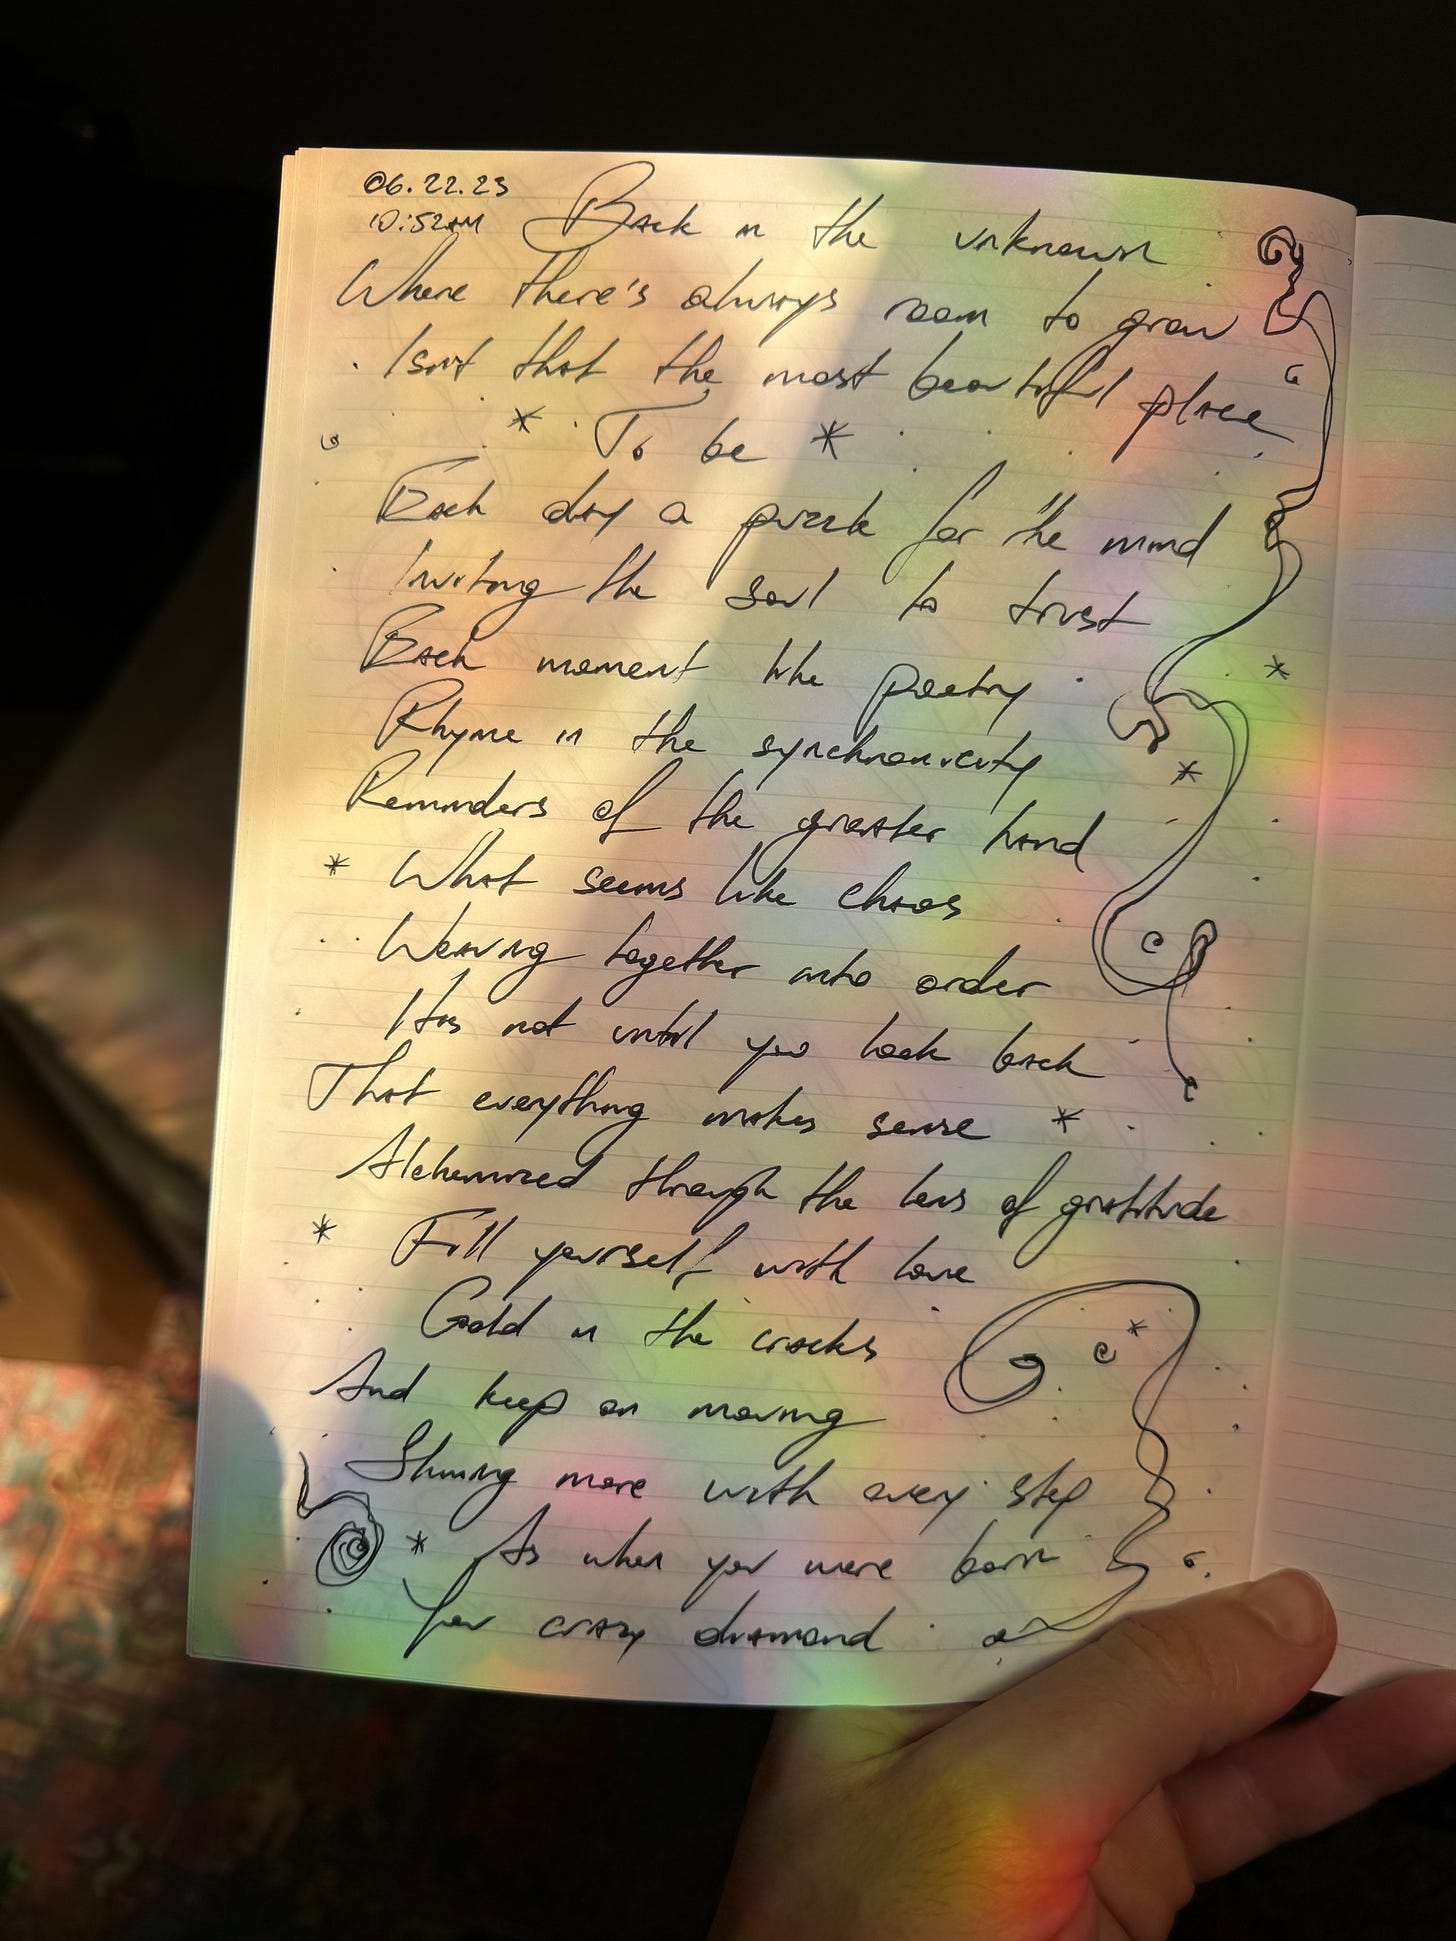 06.22.23
10:52AM
Back in the unknown
Where there's always room to grow
Isn't that the most beautiful place
* To be *
Each day a puzzle for the mind
Inviting the soul to trust
Each moment like poetry
Rhyme in the synchronicity
Reminders of the greater hand
* What seems like chaos
Weaving together into order
Its not until you look back
That everything makes sense *
Alchemized through the lens of gratitude
* Fill yourself with love
Gold in the cracks
And keep on moving
Shining more with every step
* As when you were born
You crazy diamond